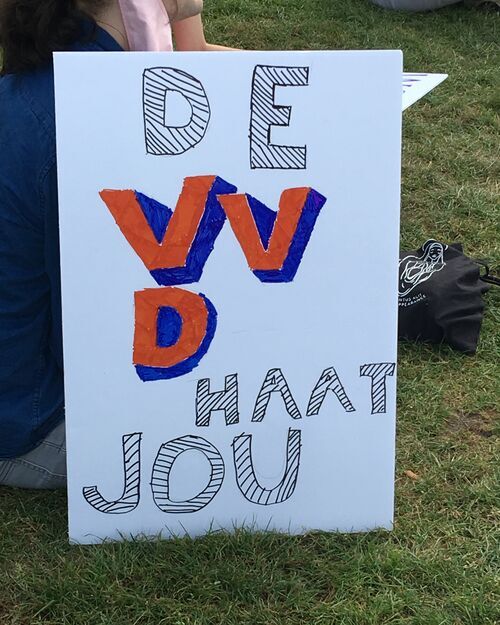 DE
VV
D
HAAT
JOU